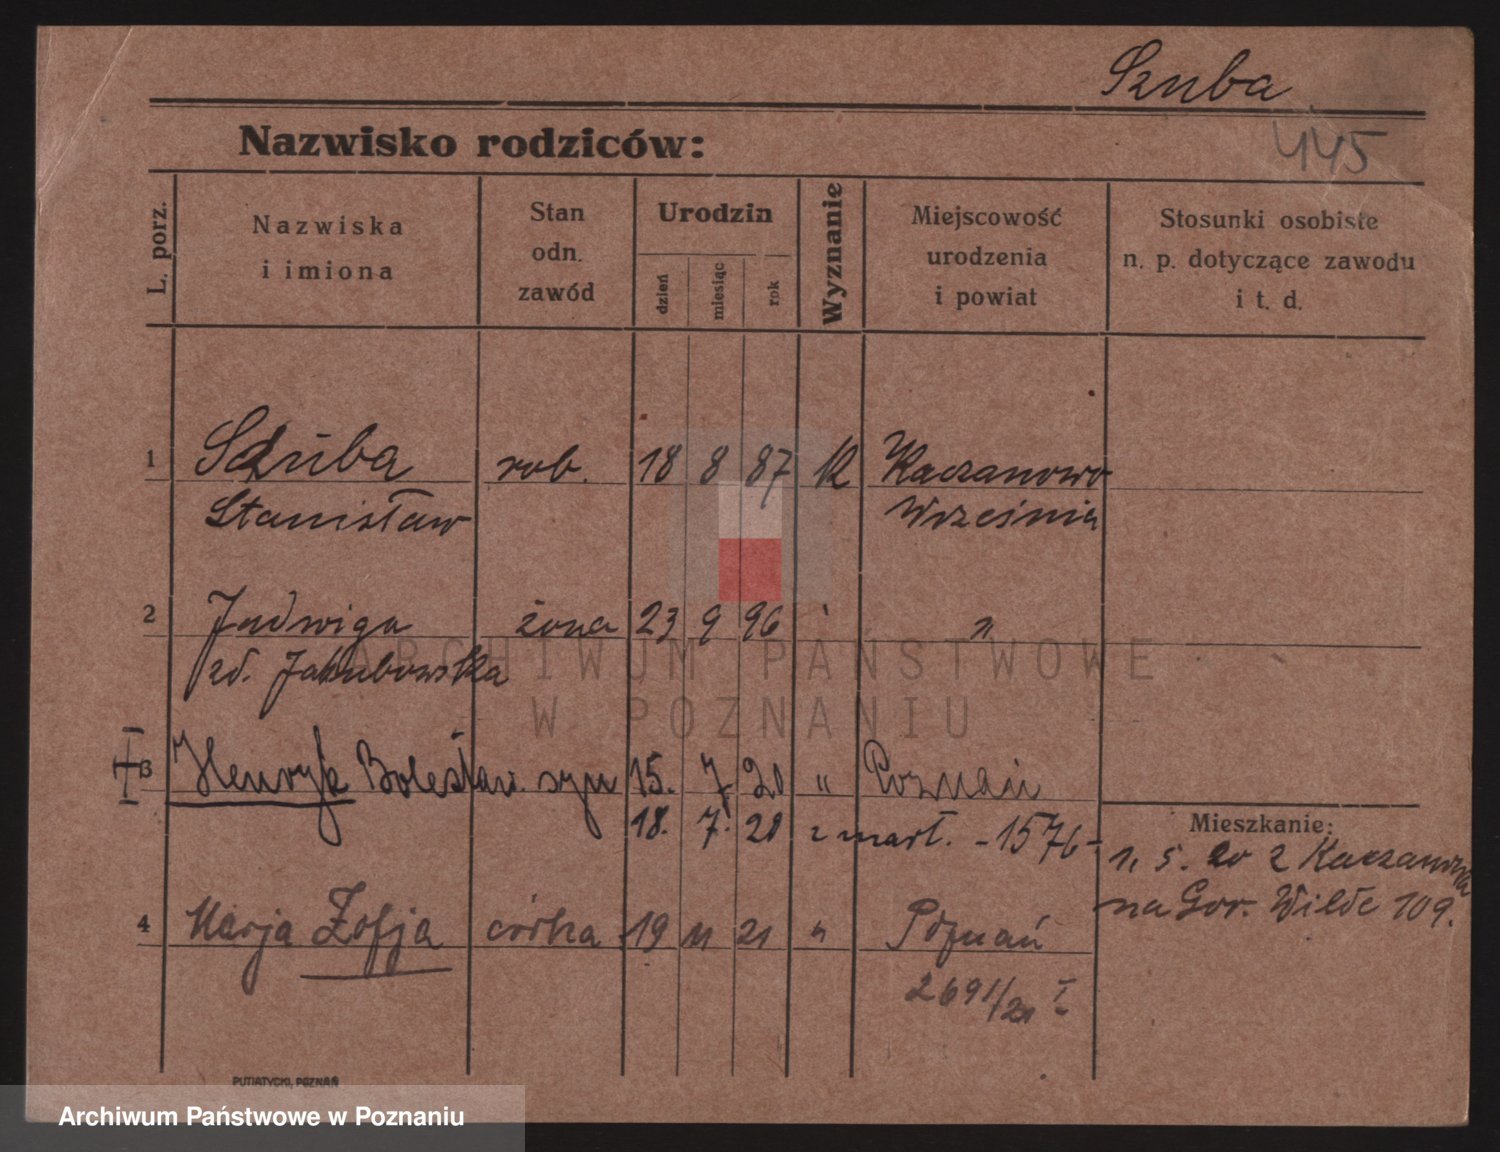 Szuba
445
Nazwisko rodziców:
L. porz.
Nazwiska
i imiona
Stan
odn.
zawód
Urodzin
dzień
miesiąc
rok
Wyznanie
Miejscowość
urodzenia
i powiat
Stosunki osobiste
n. p. dotyczące zawodu
i t. d.
1 Szuba rob. 18 8 87 k Kaczanowo
Stanisław Września
2 Jadwiga żona 23 9 96 " "
zd. Jakubowska
3 Henryk Bolesław syn 15. 7 20 " Poznań
18. 7. 20 zmarł. - 1576 -
4 Marja Zofja córka 19 11 21 " Poznań
2691/21 I
Mieszkanie:
1. 5. 20 z Kaczanowa
na Gór. Wilde 109.
PUTIATYCKI, POZNAŃ
ARCHIWUM PAŃSTWOWE
W POZNANIU
Archiwum Państwowe w Poznaniu